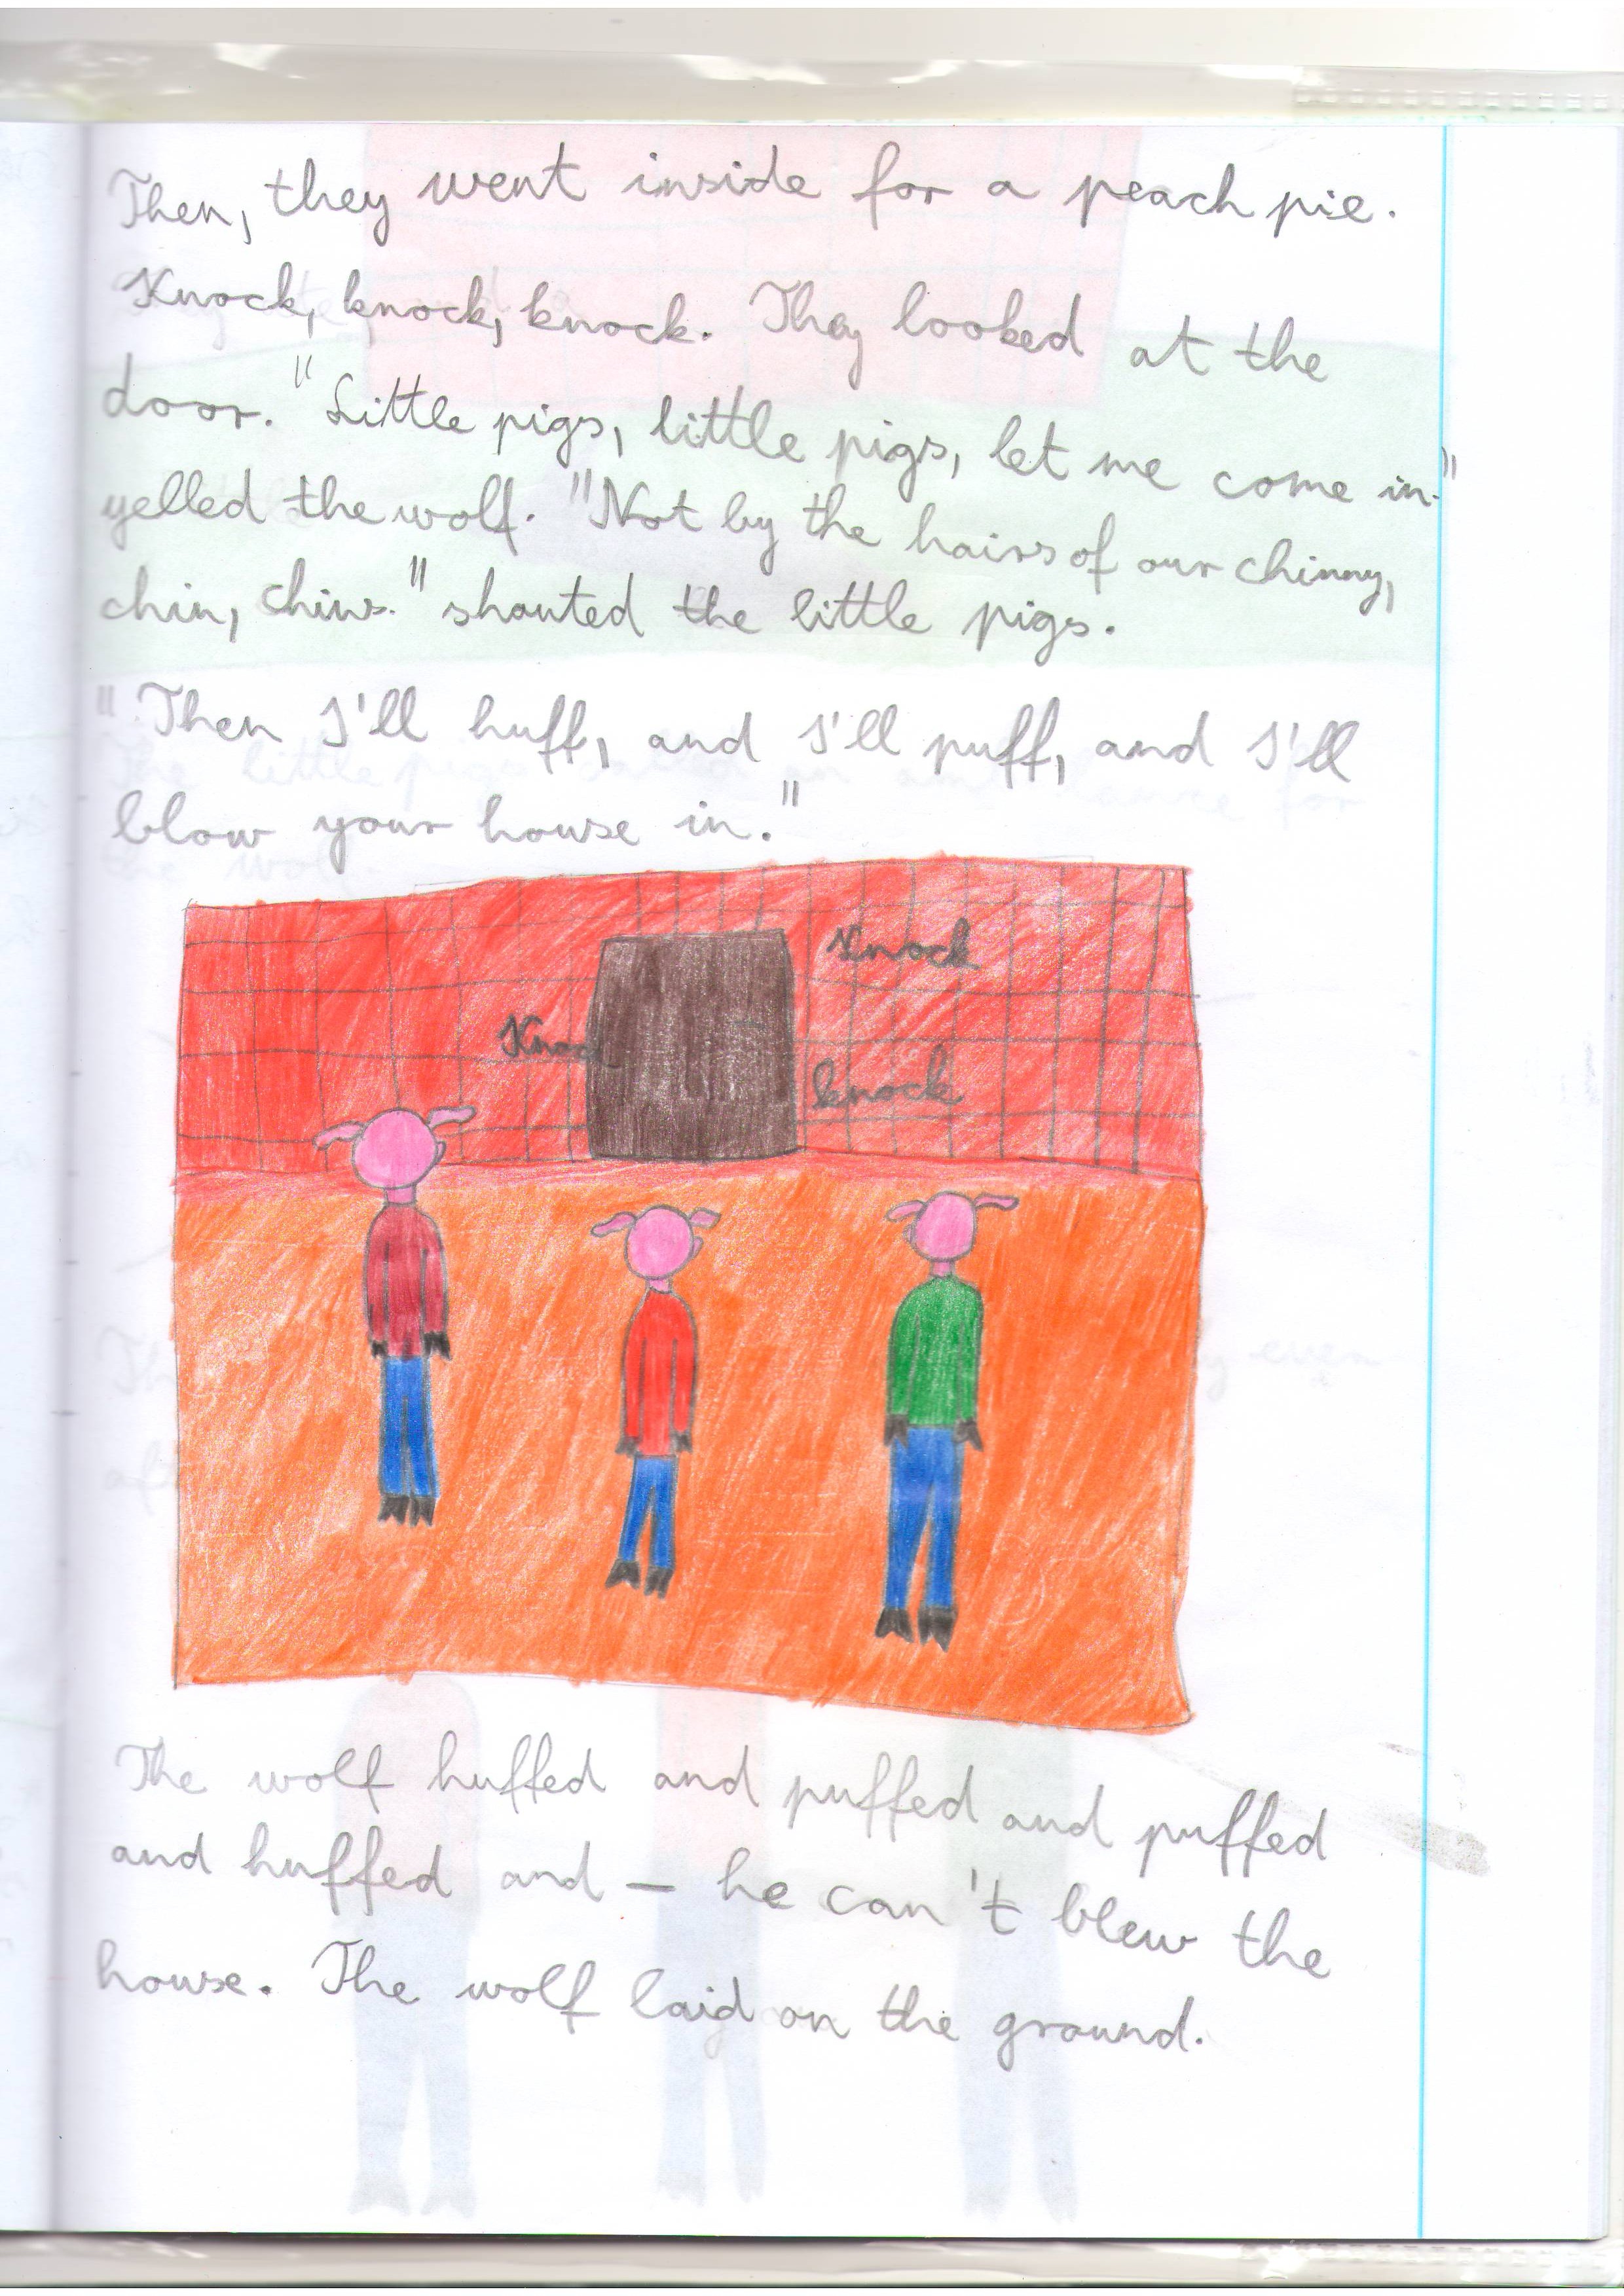 Then, they went inside for a peach pie.
Knock, knock, knock. They looked at the
door. "Little pigs, little pigs, let me come in."
yelled the wolf. "Not by the hairs of our chinny,
chin, chins." shouted the little pigs.
"Then I'll huff, and I'll puff, and I'll
blow your house in."
Knock
Knock
knock
The wolf huffed and puffed and puffed
and huffed and — he can't blew the
house. The wolf laid on the ground.